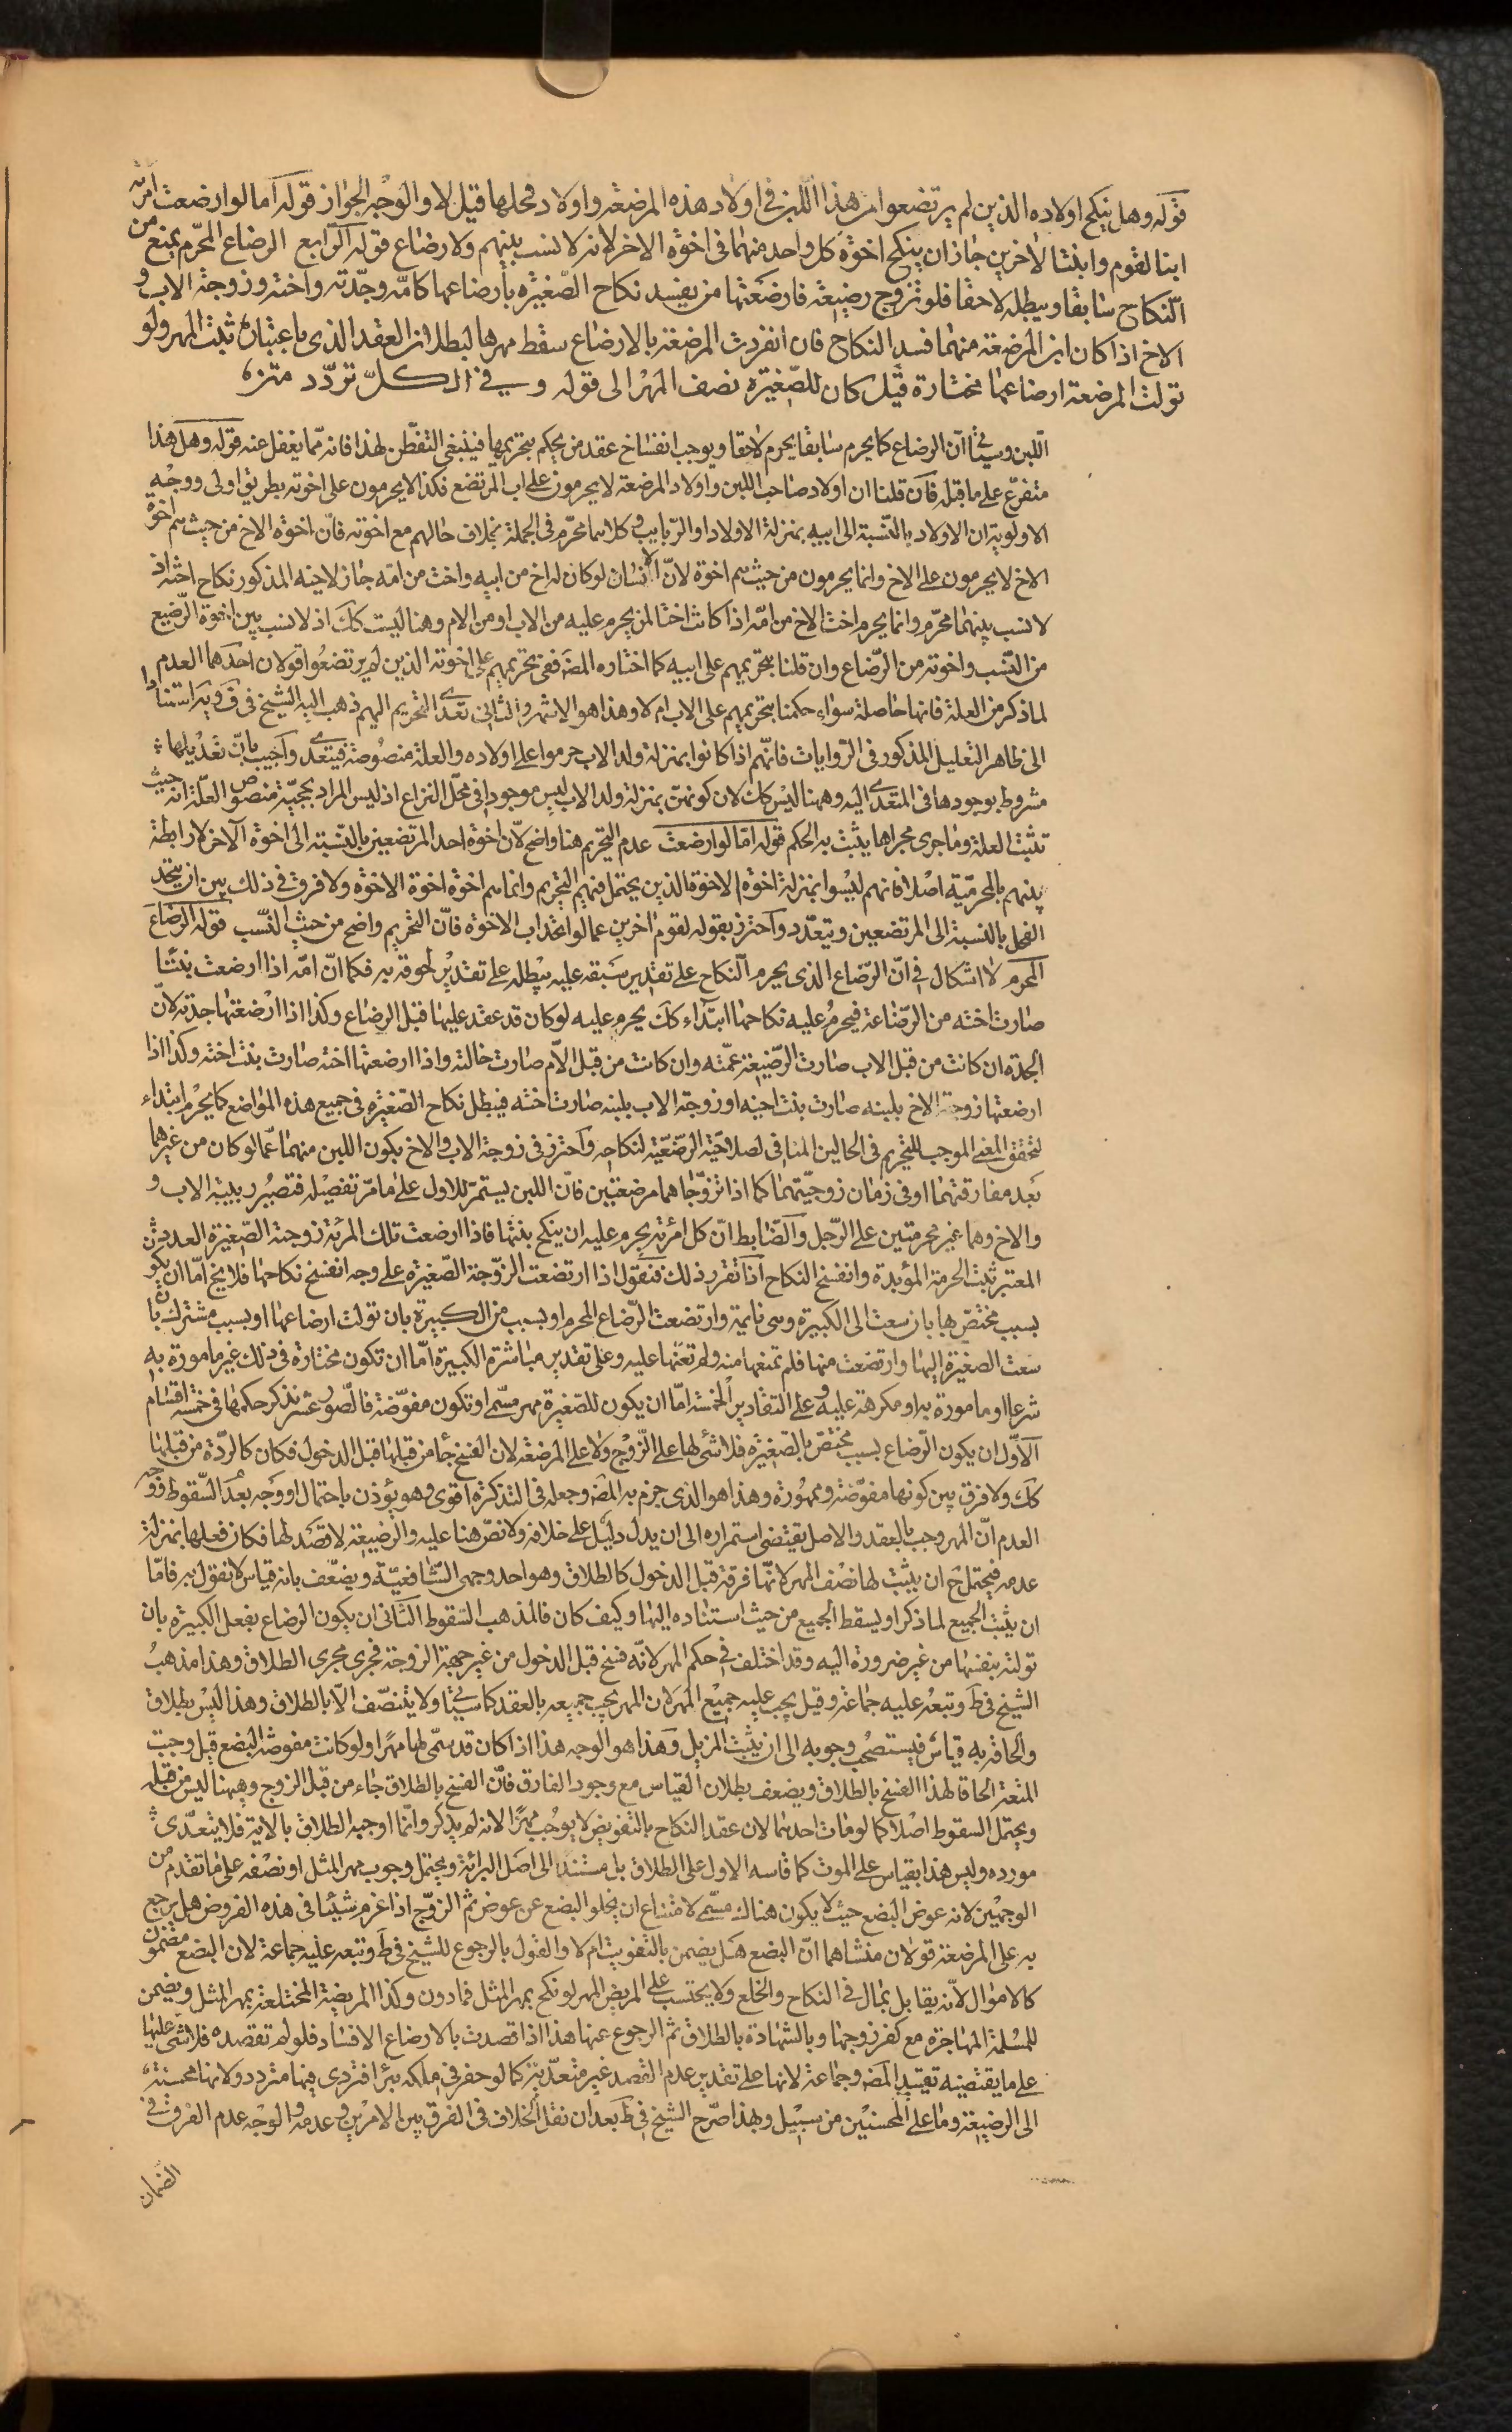 قوله وهل ينكح اولاده الذين لم يرتضعوا من هذا اللبن فى اولاد هذه المرضعة واولاد فحلها قيل لا والوجه الجواز قوله اما لو ارضعت امرئة
ابنا لقوم وابنتا لاخرين جاز ان ينكح اخوة كل واحد منهما فى اخوة الاخر لانه لا نسب بينهم ولا رضاع قوله الرابع الرضاع المحرم يمنع من
النكاح سابقا ويبطله لاحقا فلو تزوج رضيعة فارضعتها من يفسد نكاح الصغيرة بارضاعها كامه وجدته واخته وزوجة الاب و
الاخ اذا كان لبن المرضعة منهما فسد النكاح فان انفردت المرتضعة بالارتضاع سقط مهرها لبطلان العقد الذى باعتباره ثبت المهر ولو
تولت المرضعة ارضاعها مختارة قيل كان للصغيرة نصف المهر الى قوله وفى الكل تردد متن
اللبن وسيأتى ان الرضاع كما يحرم سابقا يحرم لاحقا ويوجب انفساخ عقد من يحكم بتحريمها فينبغى التفطن لهذا فانه مما يغفل عنه قوله وهل هذا
متفرع على ما قبله فان قلنا ان اولاد صاحب اللبن واولاد المرضعة لا يحرمون على اب المرتضع فكذا لا يحرمون على اخوته بطريق اولى ووجه
الاولوية ان الاولاد بالنسبة الى ابيه بمنزلة الاولاد او الربايب وكلاهما محرم فى الجملة بخلاف حالهم مع اخوته فان اخوة الاخ من حيث هم اخوة
الاخ لا يحرمون على الاخ وانما يحرمون من حيث هم اخوة لان الانسان لو كان له اخ من ابيه واخت من امه جاز لاخيه المذكور نكاح اخته اذ
لا نسب بينهما محرم وانما يحرم اخت الاخ من امه اذا كانت اختا لمن يحرم عليه من الاب او من الام وهنا ليست كك اذ لا نسب بين اخوة الرضيع
من النسب واخوته من الرضاع وان قلنا بتحريمهم على ابيه كما اختاره المص ففى تحريمهم على اخوته الذين لم يرتضعوا قولان احدهما العدم
لما ذكر من العلة فانها حاصلة سواء حكمنا بتحريمهم على الاب ام لا وهذا هو الاشهر والثانى تعدى التحريم اليهم ذهب اليه الشيخ فى ف وية استنادا
الى ظاهر التعليل المذكور فى الروايات فانهم اذا كانوا بمنزلة ولد الاب حرموا على اولاده والعلة منصوصة فيتعدى واجيب بان تعديلها
مشروط بوجودها فى المتعدى اليه وههنا ليس كك لان كونهن بمنزلة ولد الاب ليس موجودا فى محل النزاع اذ ليس المراد بحجية منصوص العلة انه حيث
تثبت العلة وما جرى مجراها يثبت به الحكم قوله اما لو ارضعت عدم التحريم هنا واضح لان اخوة احد المرتضعين بالنسبة الى اخوة الآخر لا رابطة
بينهم بالمحرمية اصلا فانهم ليسوا بمنزلة اخوة الاخوة الذين يحتمل فيهم التحريم وانما هم اخوة اخوة الاخوة ولا فرق فى ذلك بين ان يتحد
الفحل بالنسبة الى المرتضعين ويتعدد واحترز بقوله لقوم اخرين عما لو اتحد اب الاخوة فان التحريم واضح من حيث النسب قوله الرضاع
المحرم لا اشكال فى ان الرضاع الذى يحرم النكاح على تقدير سبقه عليه يبطله على تقدير لحوقه به فكما ان امه اذا ارضعت بنتا
صارت اخته من الرضاعة فيحرم عليه نكاحها ابتداء كك يحرم عليه لو كان قد عقد عليها قبل الرضاع وكذا اذا ارضعتها جدته لان
الجدة ان كانت من قبل الاب صارت الرضيعة عمته وان كانت من قبل الام صارت خالته واذا ارضعتها اخته صارت بنت اخته وكذا اذا
ارضعتها زوجة الاخ بلبنه صارت بنت اخيه او زوجة الاب بلبنه صارت اخته فيبطل نكاح الصغيرة فى جميع هذه المواضع كما يحرم ابتداء
لتحقق المعنى الموجب للتحريم فى الحالين المنافى لصلاحية الرضيعة لنكاحه واحترز فى زوجة الاب والاخ بكون اللبن منهما عما لو كان من غيرهما
بعد مفارقتهما او فى زمان زوجيتهما كما اذا تزوجاهما مرضعتين فان اللبن يستمر للاول على ما مر تفصيله فتصير ربيبة الاب و
والاخ وهما غير محرمتين على الرجل والضابط ان كل امرئة يحرم عليه ان ينكح بنتها فاذا ارضعت تلك المرئة زوجته الصغيرة العدد
المعتبر ثبت الحرمة المؤبدة وانفسخ النكاح اذا تقرر ذلك فنقول اذا ارتضعت الزوجة الصغيرة على وجه انفسخ نكاحها فلا يخ اما ان يكون
بسبب مختص بها بان سعت الى الكبيرة وهى نايمة وارتضعت الرضاع المحرم او بسبب من الكبيرة بان تولت ارضاعها او بسبب مشترك بان
سعت الصغيرة اليها وارتضعت منها فلم تمنعها منه ولم تعنها عليه وعلى تقدير مباشرة الكبيرة اما ان تكون مختارة فى ذلك غير مامورة به
شرعا او مامورة به او مكرهة عليه وعلى التقادير الخمسة اما ان يكون للصغيرة مهر مسمى او تكون مفوضة فالصور عشر نذكر حكمها فى خمسة اقسام
الاول ان يكون الرضاع بسبب مختص بالصغيرة فلا شئ لها على الزوج ولا على المرضعة لان الفسخ جاء من قبلها قبل الدخول فكان كالردة من قبلها
كك ولا فرق بين كونها مفوضة وممهورة وهذا هو الذى جزم به المص وجعله فى التذكرة اقوى وهو يؤذن باحتمال او وجه بعدم السقوط ووجه
العدم ان المهر وجب بالعقد والاصل يقتضى استمراره الى ان يدل دليل على خلافه ولا نص هنا عليه والرضيعة لا قصد لها فكان فعلها بمنزلة
عدمه فيحتمل ح ان يثبت لها نصف المهر لانها فرقة قبل الدخول كالطلاق وهو احد وجهى الشافعية ويضعف بانه قياس لا نقول به فاما
ان يثبت الجميع لما ذكر او يسقط الجميع من حيث استناده اليها وكيف كان فالمذهب السقوط الثانى ان يكون الرضاع بفعل الكبيرة بان
تولته بنفسها من غير ضرورة اليه وقد اختلف فى حكم المهر لانه فسخ قبل الدخول من غير جهة الزوجة فجرى مجرى الطلاق وهذا مذهب
الشيخ فى ط وتبعه عليه جماعة وقيل يجب عليه جميع المهر لان المهر يجب جميعه بالعقد كما سيأتى ولا يتنصف الا بالطلاق وهذا ليس بطلاق
والحاقه به قياس فيستصحب وجوبه الى ان يثبت المزيل وهذا هو الوجه هذا اذا كان قد سمى لها مهرا ولو كانت مفوضة البضع قيل وجب
المتعة الحاقا لهذا الفسخ بالطلاق ويضعف ببطلان القياس مع وجود الفارق فان الفسخ بالطلاق جاء من قبل الزوج وههنا ليس من قبله
ويحتمل السقوط اصلا كما لو مات احدهما لان عقد النكاح بالتفويض لا يوجب مهرا لانه لم يذكر وانما اوجبه الطلاق بالاية فلا يتعدى
مورده وليس هذا بقياس على الموت كما قاسه الاول على الطلاق بل مستندا الى اصل البرائة ويحتمل وجوب مهر المثل او نصفه على ما تقدم من
الوجهين لانه عوض البضع حيث لا يكون هناك مسمى لامتناع ان يخلو البضع عن عوض ثم الزوج اذا غرم شيئا فى هذه الفروض هل يرجع
به على المرضعة قولان منشاهما ان البضع هل يضمن بالتفويت ام لا والقول بالرجوع للشيخ فى ط وتبعه عليه جماعة لان البضع مضمون
كالاموال لانه يقابل بمال فى النكاح والخلع ولا يحتسب على المريض المهر لو نكح بمهر المثل فما دون وكذا المريضة المختلعة بمهر المثل ويضمن
للمسلمة المهاجرة مع كفر زوجها وبالشهادة بالطلاق ثم الرجوع عنها هذا اذا قصدت بالارضاع الافساد فلو لم تقصده فلا شئ عليها
على ما يقتضيه تقييد المص وجماعة لانها على تقدير عدم القصد غير متعدية كما لو حفر فى ملكه بئرا فتردى فيها متردد ولانها محسنة
الى الرضيعة وما على المحسنين من سبيل وبهذا صرح الشيخ فى ط بعد ان نقل الخلاف فى الفرق بين الامرين وعدمه والوجه عدم الفرق فى
الضمان